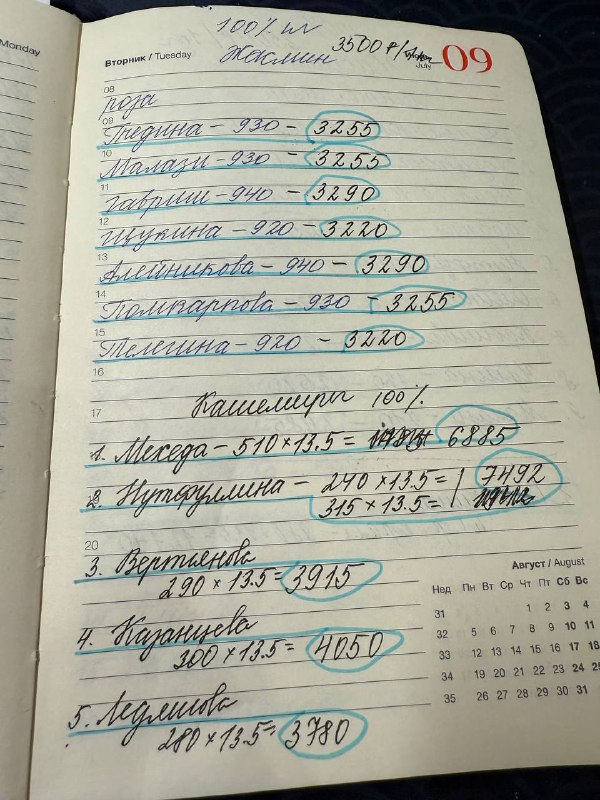 Monday
100% ш
Вторник / Tuesday
Жасмин 3500 ₽/
July
09
08
роза
09
Гредина – 930 – 3255
10
Малази – 930 – 3255
11
Гавриш – 940 – 3290
12
Щукина – 920 – 3220
13
Алейникова – 940 – 3290
14
Помкарпова – 930 – 3255
15
Телегина – 920 – 3220
16
17
Кашемиры 100%
1. Мехеда – 510 × 13.5 = 6885
2. Нутфуллина – 240 × 13.5 = 7492
315 × 13.5 =
20
3. Вертянова
290 × 13.5 = 3915
4. Казанцева
300 × 13.5 = 4050
5. 
280 × 13.5 = 3780
Август / August
Нед Пн Вт Ср Чт Пт Сб Вс
31 1 2 3 4
32 5 6 7 8 9 10 11
33 12 13 14 15 16 17 18
34 19 20 21 22 23 24 25
35 26 27 28 29 30 31